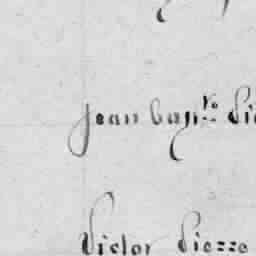 Jean bap.te Pie
Victor Piozzo